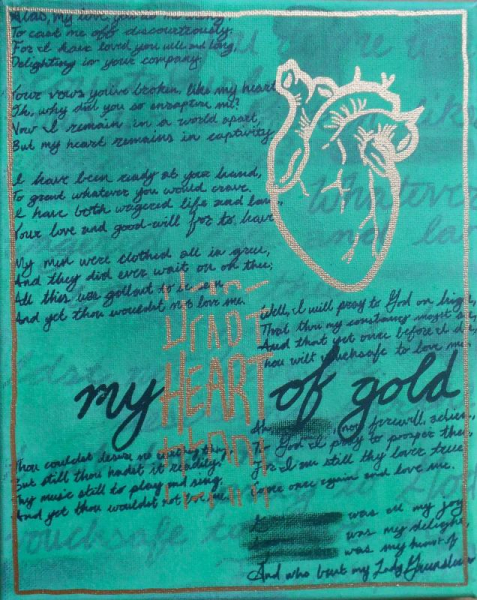 Alas, my love, you do me wrong,
To cast me off discourteously.
For I have loved you well and long,
Delighting in your company.
Your vows you've broken, like my heart,
Oh, why did you so enrapture me?
Now I remain in a world apart,
But my heart remains in captivity
I have been ready at your hand,
To grant whatever you would crave,
I have both wagered life and land,
Your love and good-will for to have
My men were clothed all in green,
And they did ever wait on thee;
All this was gallant to be seen
And yet thou wouldst not love me.
Well, I will pray to God on high,
That thou my constancy mayst see,
And that yet once before I die,
Thou wilt vouchsafe to love me.
HEART
HEART
my HEART of gold
HEART
Thou couldst desire no earthly thing,
But still thou hadst it readily.
Thy music still to play and sing;
And yet thou wouldst not love me.
now farewell, adieu,
To God I pray to prosper thee,
For I am still thy lover true
Come once again and love me.
was all my joy
was my delight,
was my heart of
And who but my Lady Greensleeves
Whatever
and lan
vouchsafe to